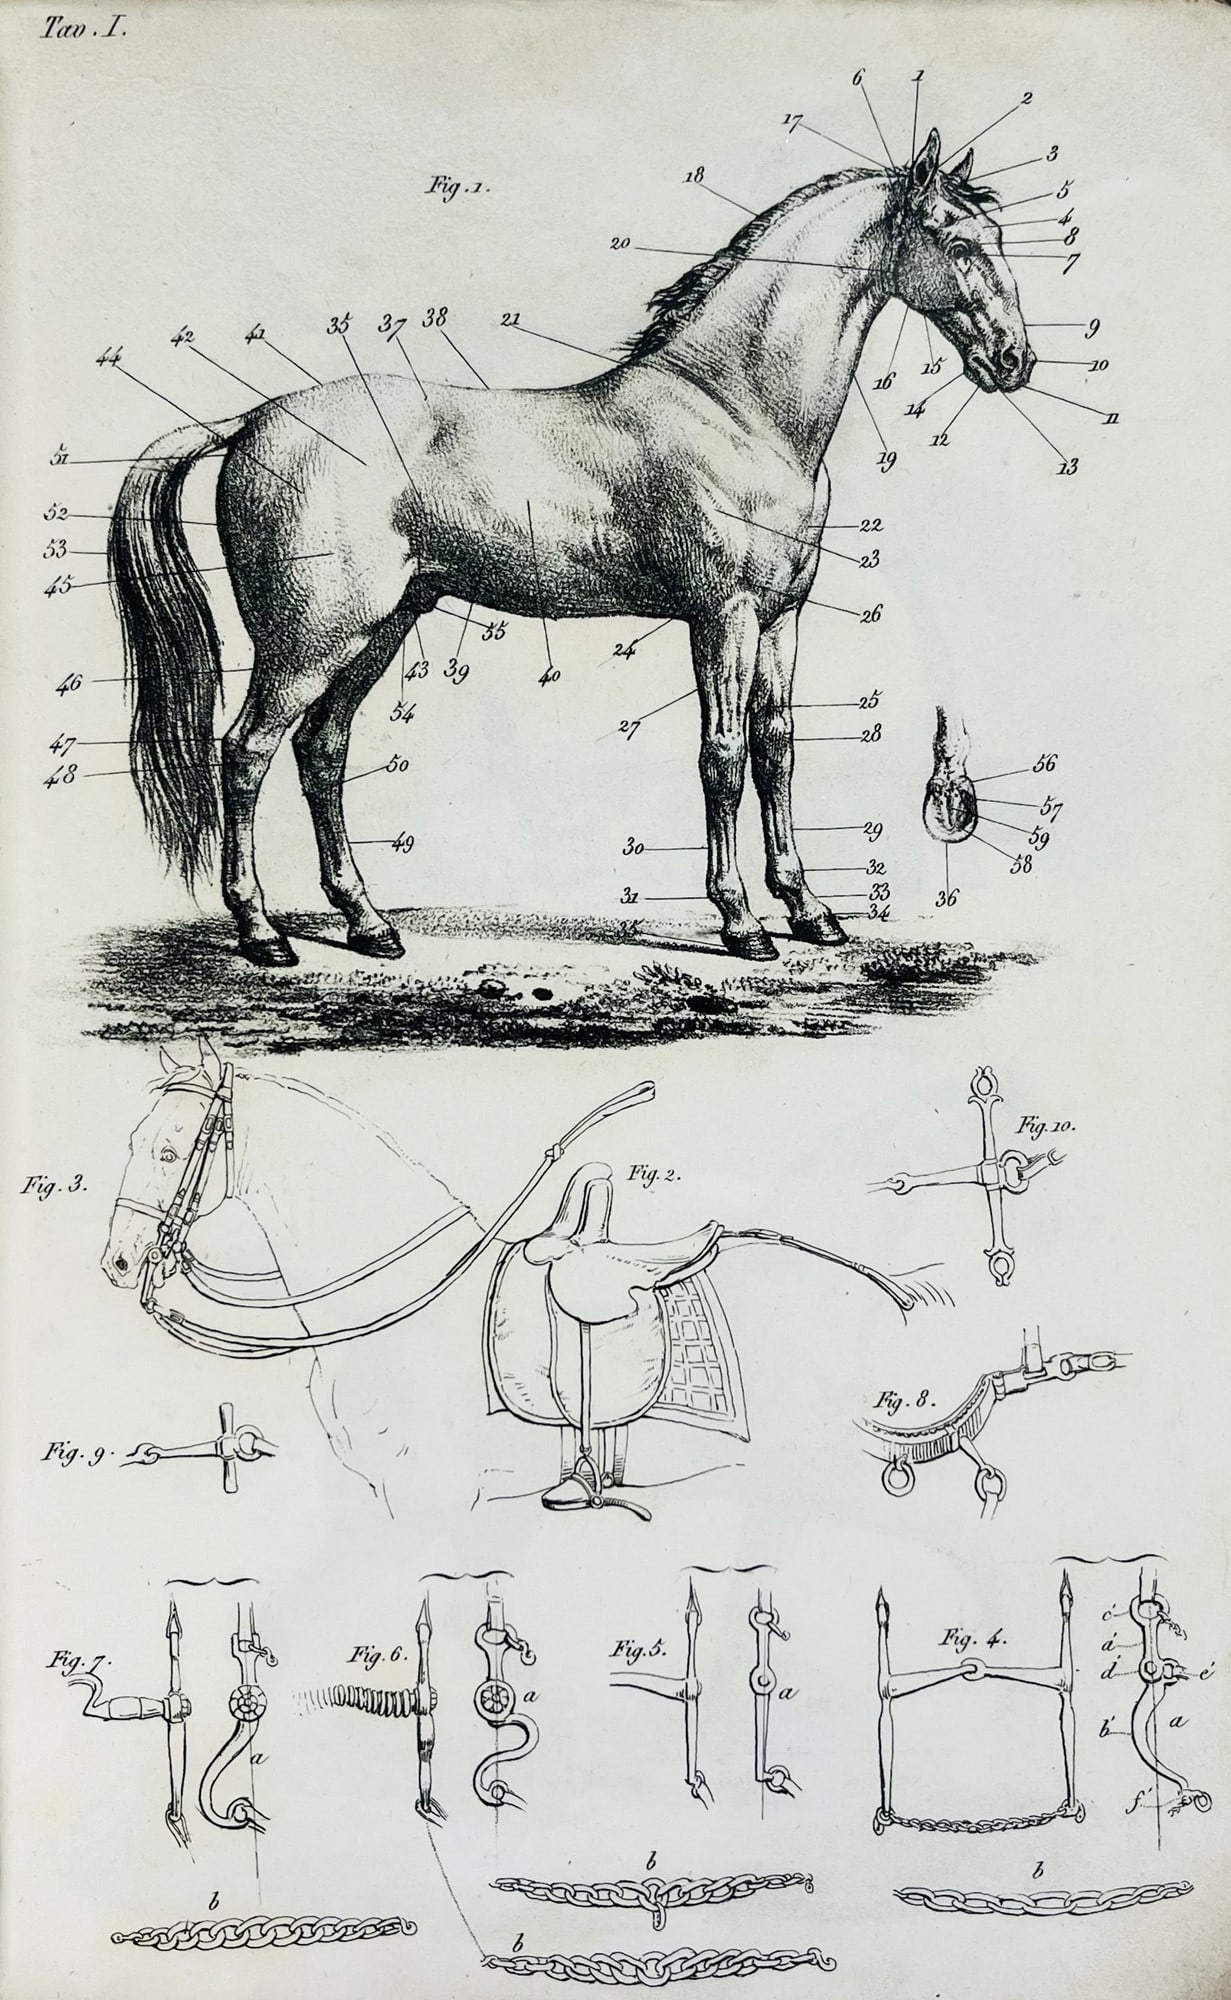 Tav. I.
6 1
2
17
3
Fig. 1.
18
5
4
20
8
7
42 41 35 37 38 21
9
44
10
16 15
14
11
12
51
19
13
52
22
53
23
45
26
55
24
46
43 39 40
25
54
27
47
28
48
50
56
57
29
59
49
30
58
32
31
33
36
34
35
Fig. 10.
Fig. 3.
Fig. 2.
Fig. 8.
Fig. 9.
Fig. 7.
Fig. 6.
Fig. 5.
Fig. 4.
c'
a'
d'
e'
a
a
b'
a
a
f'
b
b
b
b